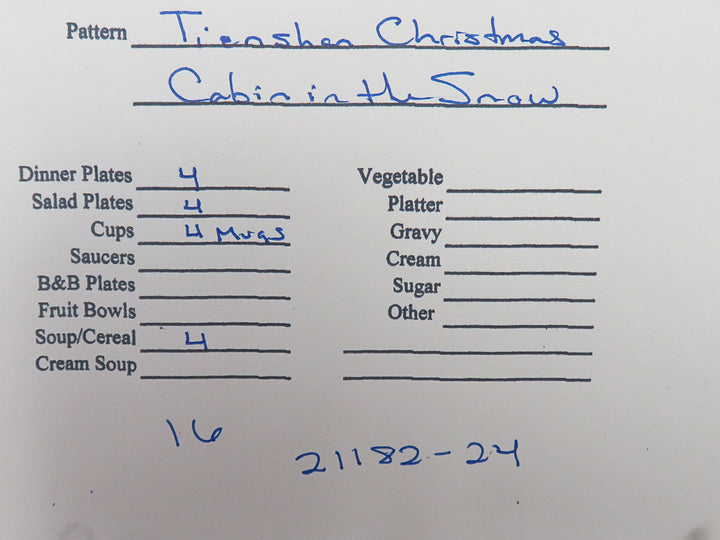 Pattern Tienshan Christmas
Cabin in the Snow
Dinner Plates 4
Salad Plates 4
Cups 4 Mugs
Saucers
B&B Plates
Fruit Bowls
Soup/Cereal 4
Cream Soup
Vegetable
Platter
Gravy
Cream
Sugar
Other
16
21182-24